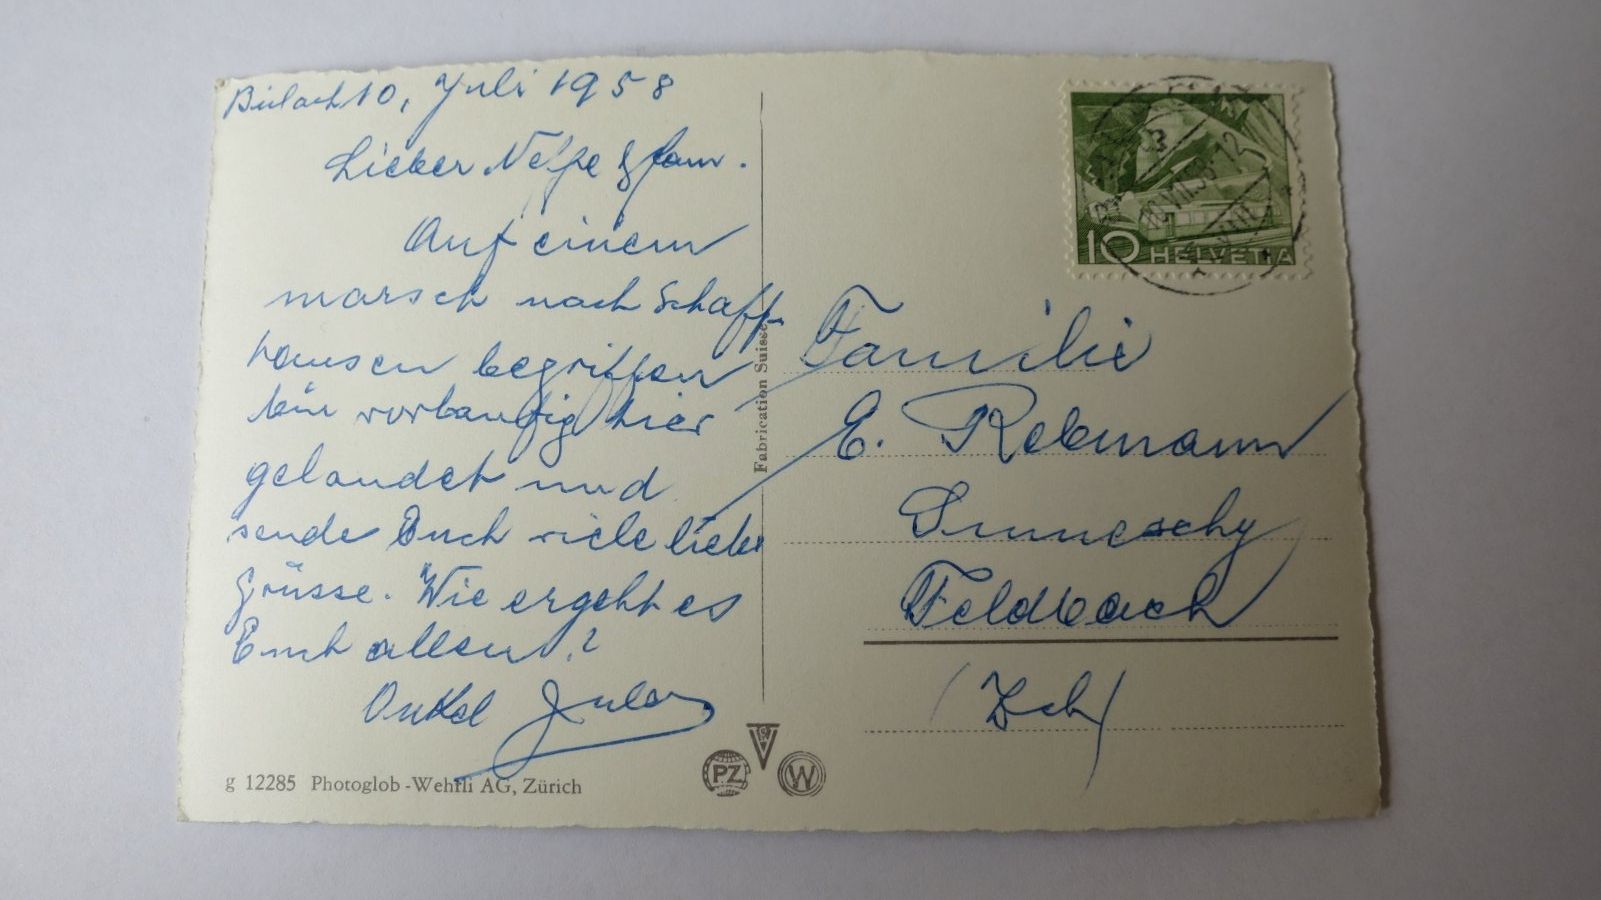 Bülach 10, Juli 1958
Lieber Neffe & fam.
Auf einem
marsch nach Schaff-
hausen begriffen
bin vorläufig hier
gelandet und
sende Euch viele liebe
Grüsse. Wie ergeht es
Euch allen?
Onkel
g 12285 Photoglob-Wehrli AG, Zürich
Fabrication Suisse
PZ
W
10 HELVETIA
Familie
E. Rebmann
Feldbach
(Zch)